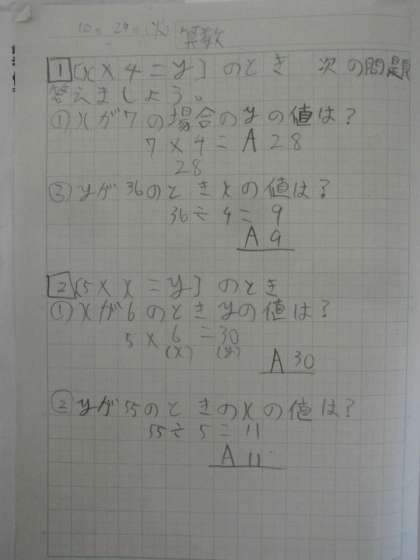 10 = 29 = (火) 算数
1 [x × 4 = y] のとき 次の問題
答えましょう。
① xが7の場合のyの値は?
7 × 4 = A 28
28
② yが36のときxの値は?
36 ÷ 4 = 9
A 9
2 [5 × x = y] のとき
① xが6のときyの値は?
5 × 6 = 30
(x) (y)
A 30
② yが55のときのxの値は?
55 ÷ 5 = 11
A 11